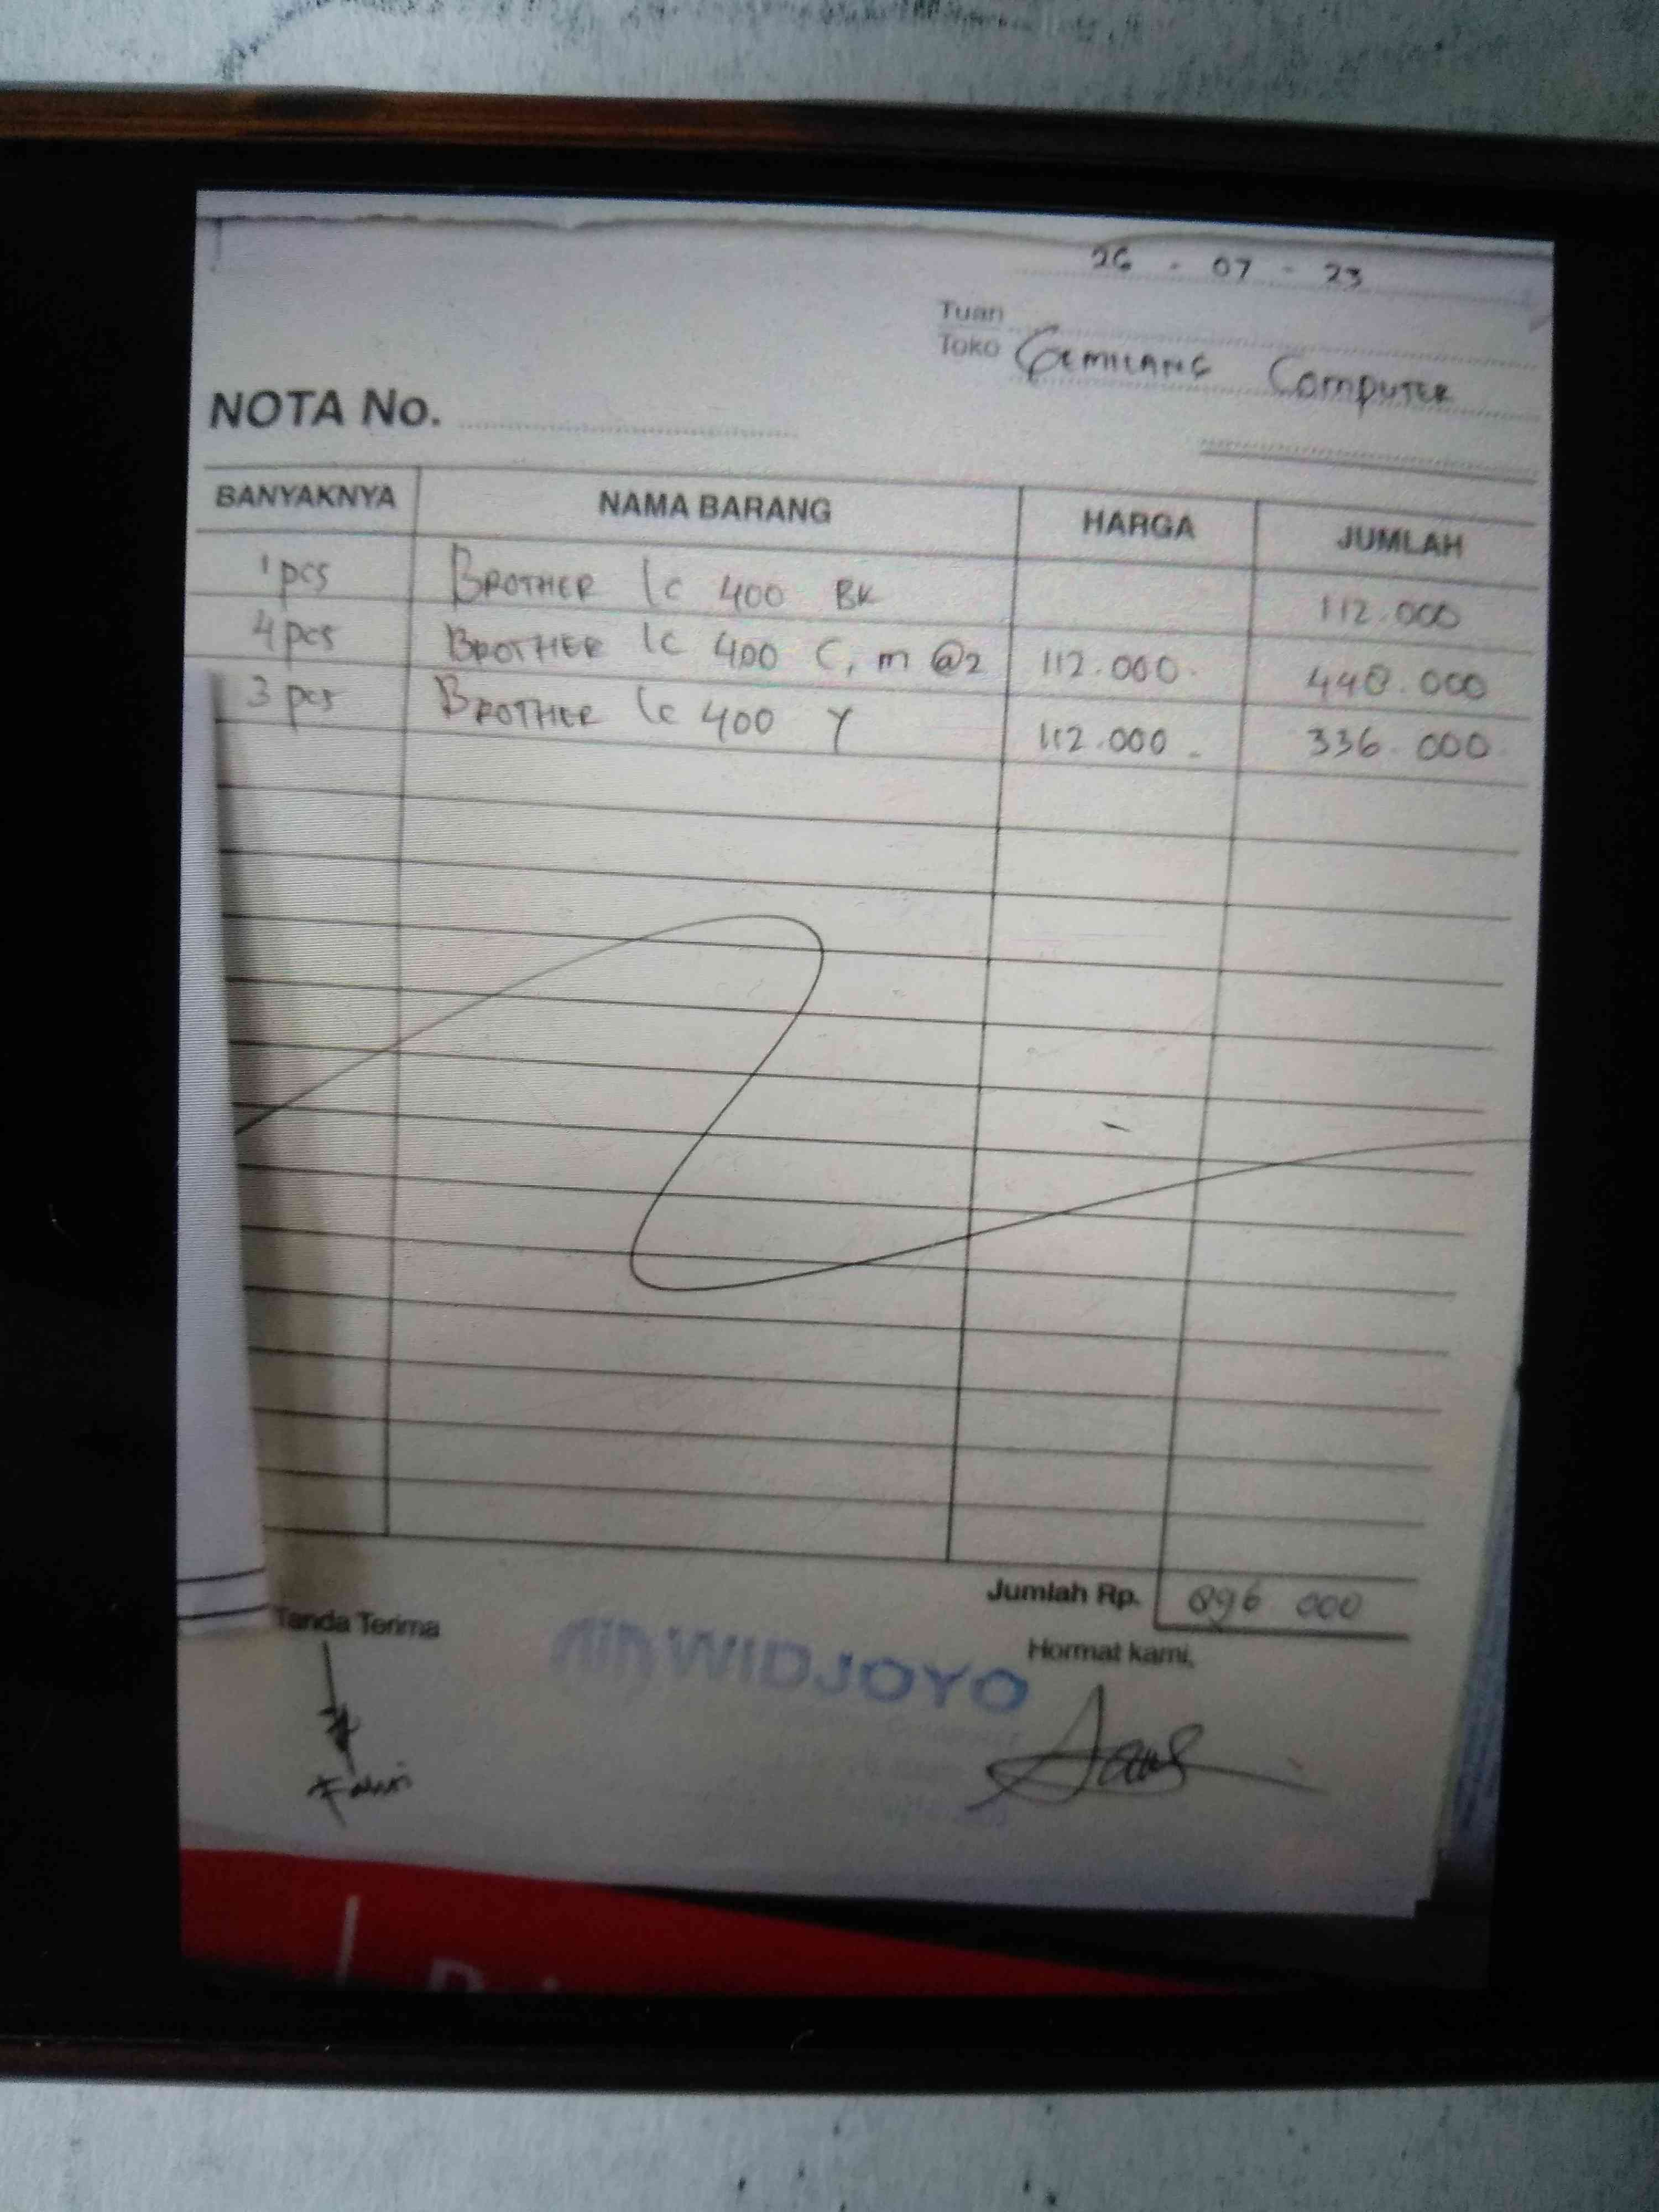 26 - 07 - 23
Tuan
Toko GEMILANG COMPUTER
NOTA No.
BANYAKNYA NAMA BARANG HARGA JUMLAH
1 pcs BROTHER lc 400 BK 112.000
4 pcs BROTHER lc 400 C, m @2 112.000 448.000
3 pcs BROTHER lc 400 Y 112.000 336.000
Jumlah Rp. 896 000
Tanda Terima
Hormat kami,
WIDJOYO